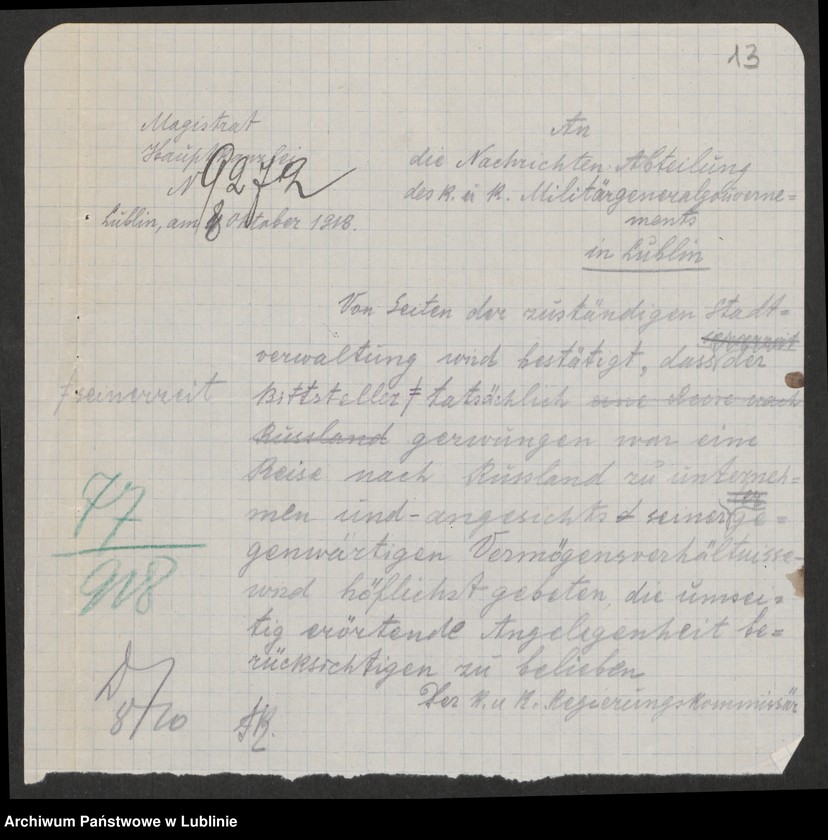 13
Magistrat
Hauptkanzlei
N 9272
Lublin, am 8 Oktober 1918.
An
die Nachrichten-Abteilung
des k. u k. Militärgeneralgouverne=
ments
in Lublin
Von Seiten der zuständigen Stadt=
verwaltung wird bestätigt, dass der
Bittsteller ≠ tatsächlich eine Reise nach
≠ seinerzeit
Russland gezwungen war eine
Reise nach Russland zu unterneh=
men und - angesichts seiner ge=
genwärtigen Vermögensverhältnisse-
wird höflichst gebeten, die umsei=
tig erörtende Angelegenheit be=
rücksichtigen zu belieben
Der k. u k. Regierungskommissär
77
918
D 8/10
Archiwum Państwowe w Lublinie